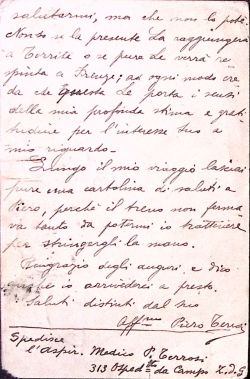 salutarmi, ma che non lo potè.
Non so se la presente La raggiungerà
a Territa o se pure Le verrà re-
spinta a Firenze; ad ogni modo cre
da che questa Le porta i sensi
della mia profonda stima e grati
tudine per l'interesse Suo a
mio riguardo.
Lungo il mio viaggio lasciai
pure una cartolina di saluti a
Piero, perchè il treno non ferma
va tanto da potermi io trattenere
per stringergli la mano.
Ringrazio degli auguri, e dico
io arrivederci a presto.
Saluti distinti dal suo
Aff.mo Piero Terrosi
Spedisce
l'Aspir. Medico P. Terrosi
313 Osped.le da Campo Z.d.G